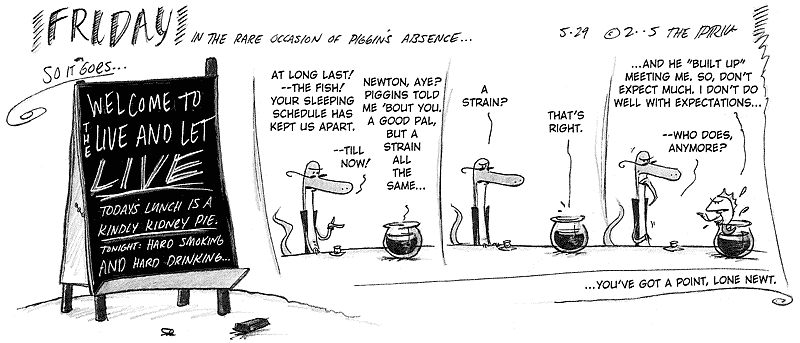 FRIDAY
IN THE RARE OCCASION OF PIGGIN'S ABSENCE...
5·29 © 2··5 THE
SO IT GOES...
WELCOME TO
THE LIVE AND LET
LIVE
TODAY'S LUNCH IS A
KINDLY KIDNEY PIE.
TONIGHT: HARD SMOKING
AND HARD DRINKING...
AT LONG LAST!
--THE FISH!
YOUR SLEEPING
SCHEDULE HAS
KEPT US APART.
--TILL
NOW!
NEWTON, AYE?
PIGGINS TOLD
ME 'BOUT YOU.
A GOOD PAL,
BUT A
STRAIN
ALL
THE
SAME...
A
STRAIN?
THAT'S
RIGHT.
...AND HE "BUILT UP"
MEETING ME. SO, DON'T
EXPECT MUCH. I DON'T DO
WELL WITH EXPECTATIONS...
--WHO DOES,
ANYMORE?
...YOU'VE GOT A POINT, LONE NEWT.